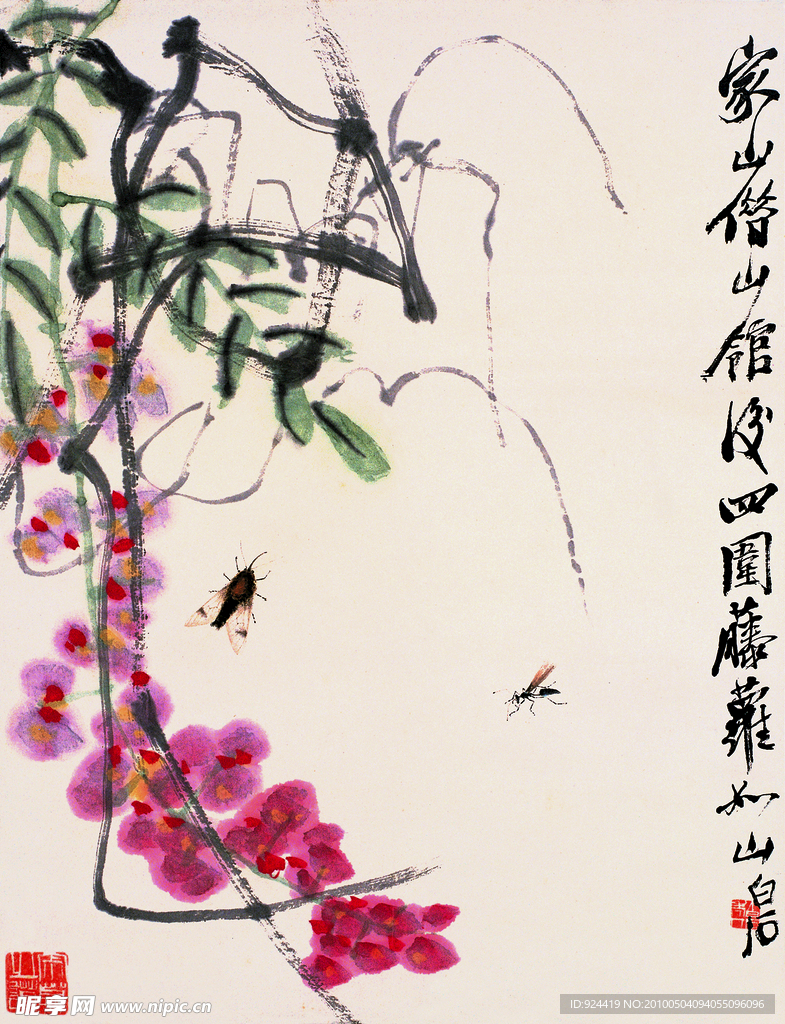 家山借山館後四圍藤蘿如山白石
昵享网 www.nipic.cn
ID:924419 NO:20100504094055096096